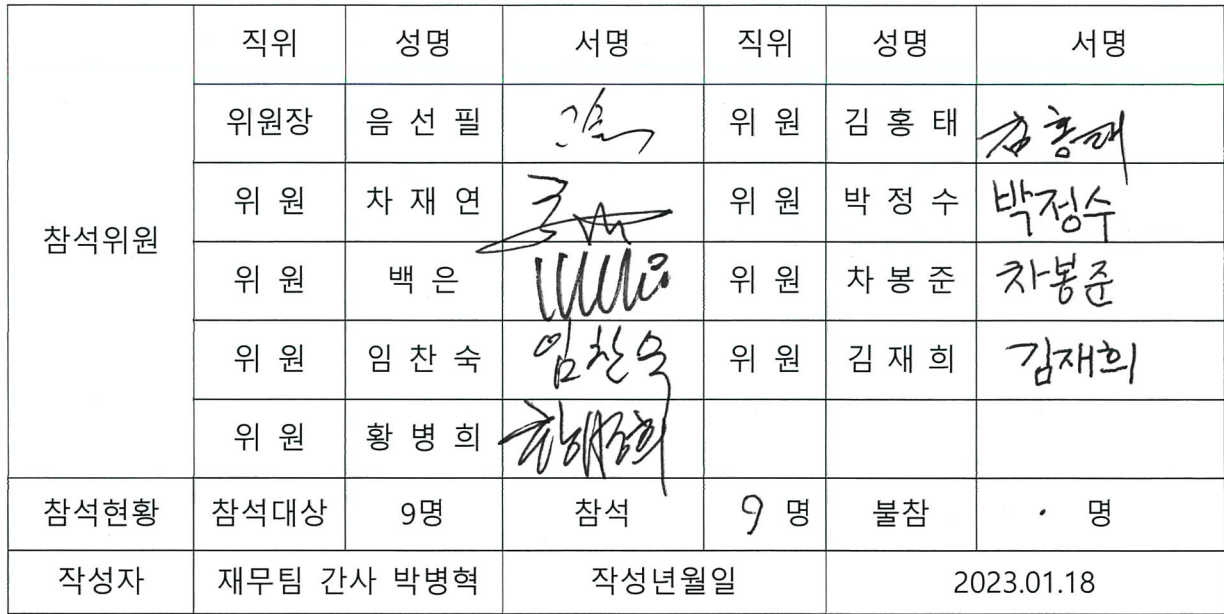 직위 성명 서명 직위 성명 서명
위원장 음 선 필 위 원 김 홍 태 김홍태
위 원 차 재 연 위 원 박 정 수 박정수
참석위원
위 원 백 은 위 원 차 봉 준 차봉준
위 원 임 찬 숙 임찬숙 위 원 김 재 희 김재희
위 원 황 병 희 황병희
참석현황 참석대상 9명 참석 9 명 불참 · 명
작성자 재무팀 간사 박병혁 작성년월일 2023.01.18